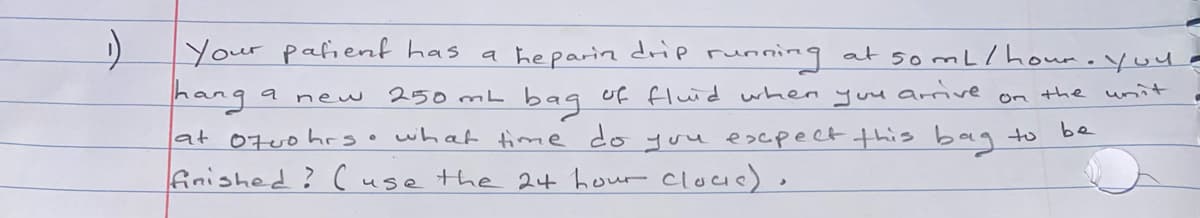 1) Your patient has a heparin drip running at 50 mL/hour. You
hang a new 250 mL bag of fluid when you arrive on the unit
at 0700 hrs. what time do you expect this bag to be
finished? (use the 24 hour clock).